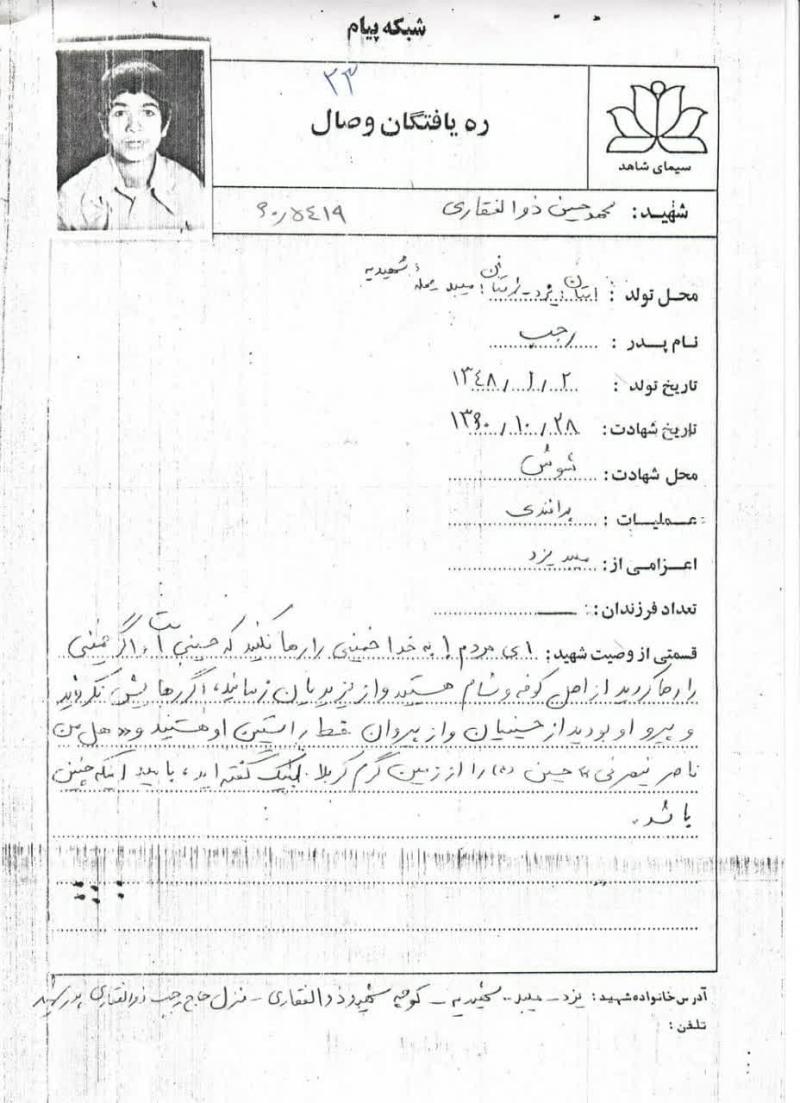 شبکه پیام
۲۳
ره یافتگان وصال
سیمای شاهد
شهید: محمد حسین ذوالفقاری ۶۰/۵۴۱۹
محل تولد : استان یزد - شهرستان میبد محله شهیدیه
نام پدر : رجب
تاریخ تولد : ۱۳۴۸/۱/۲
تاریخ شهادت: ۱۳۶۰/۱۰/۲۸
محل شهادت: شوش
عملیات : پدافندی
اعزامی از: میبد یزد
تعداد فرزندان: ــ
قسمتی از وصیت شهید: ای مردم! به خدا خمینی را رها نکنید که حسینی است، اگر خمینی
را رها کردید از اهل کوفه و شام هستید و از یزیدیان زمانید، اگر رهایش نکردید
و پیرو او بودید از حسینیان و از پیروان خط راستین او هستید و «هل من
ناصر ینصرنی» حسین (ع) را از زمین گرم کربلا لبیک گفته اید، باید اینکه چنین
باشد.
آدرس خانواده شهید: یزد - میبد - شهیدیه - کوچه شهید ذوالفقاری - منزل حاج رجب ذوالفقاری پدر شهید
تلفن: